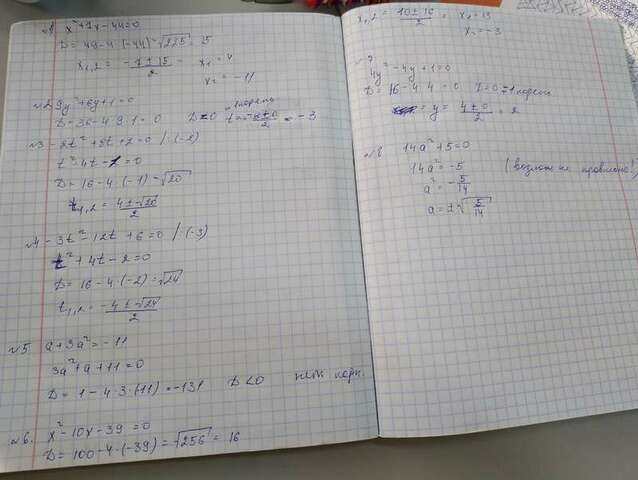 №1 x²+7x-44=0
D=49-4·(-44)=√225=15
x₁,₂ = (-7±15)/2 = x₁=4
x₂=-11
№2 9y²+6y+1=0
D=36-4·9·1=0 D=0 1 корень t=(-6±0)/2=-3
№3 -2t²+8t+2=0 /:(-2)
t²-4t-1=0
D=16-4·(-1)=√20
t₁,₂=(4±√20)/2
№4 -3t²-12t+6=0 /:(-3)
t²+4t-2=0
D=16-4·(-2)=√24
t₁,₂=(-4±√24)/2
№5 a+3a²=-11
3a²+a+11=0
D=1-4·3·(11)=-131 D<0 нет корн.
№6. x²-10x-39=0
D=100-4·(-39)=√256=16
x₁,₂=(10±16)/2= x₁=13
x₂=-3
№7
4y²-4y+1=0
D=16-4·4=0 D=0 1 корень
y=(4±0)/2=2
№8 14a²+5=0
14a²=-5 (возмож не правильно)
a²=-5/14
a=±√(5/14)